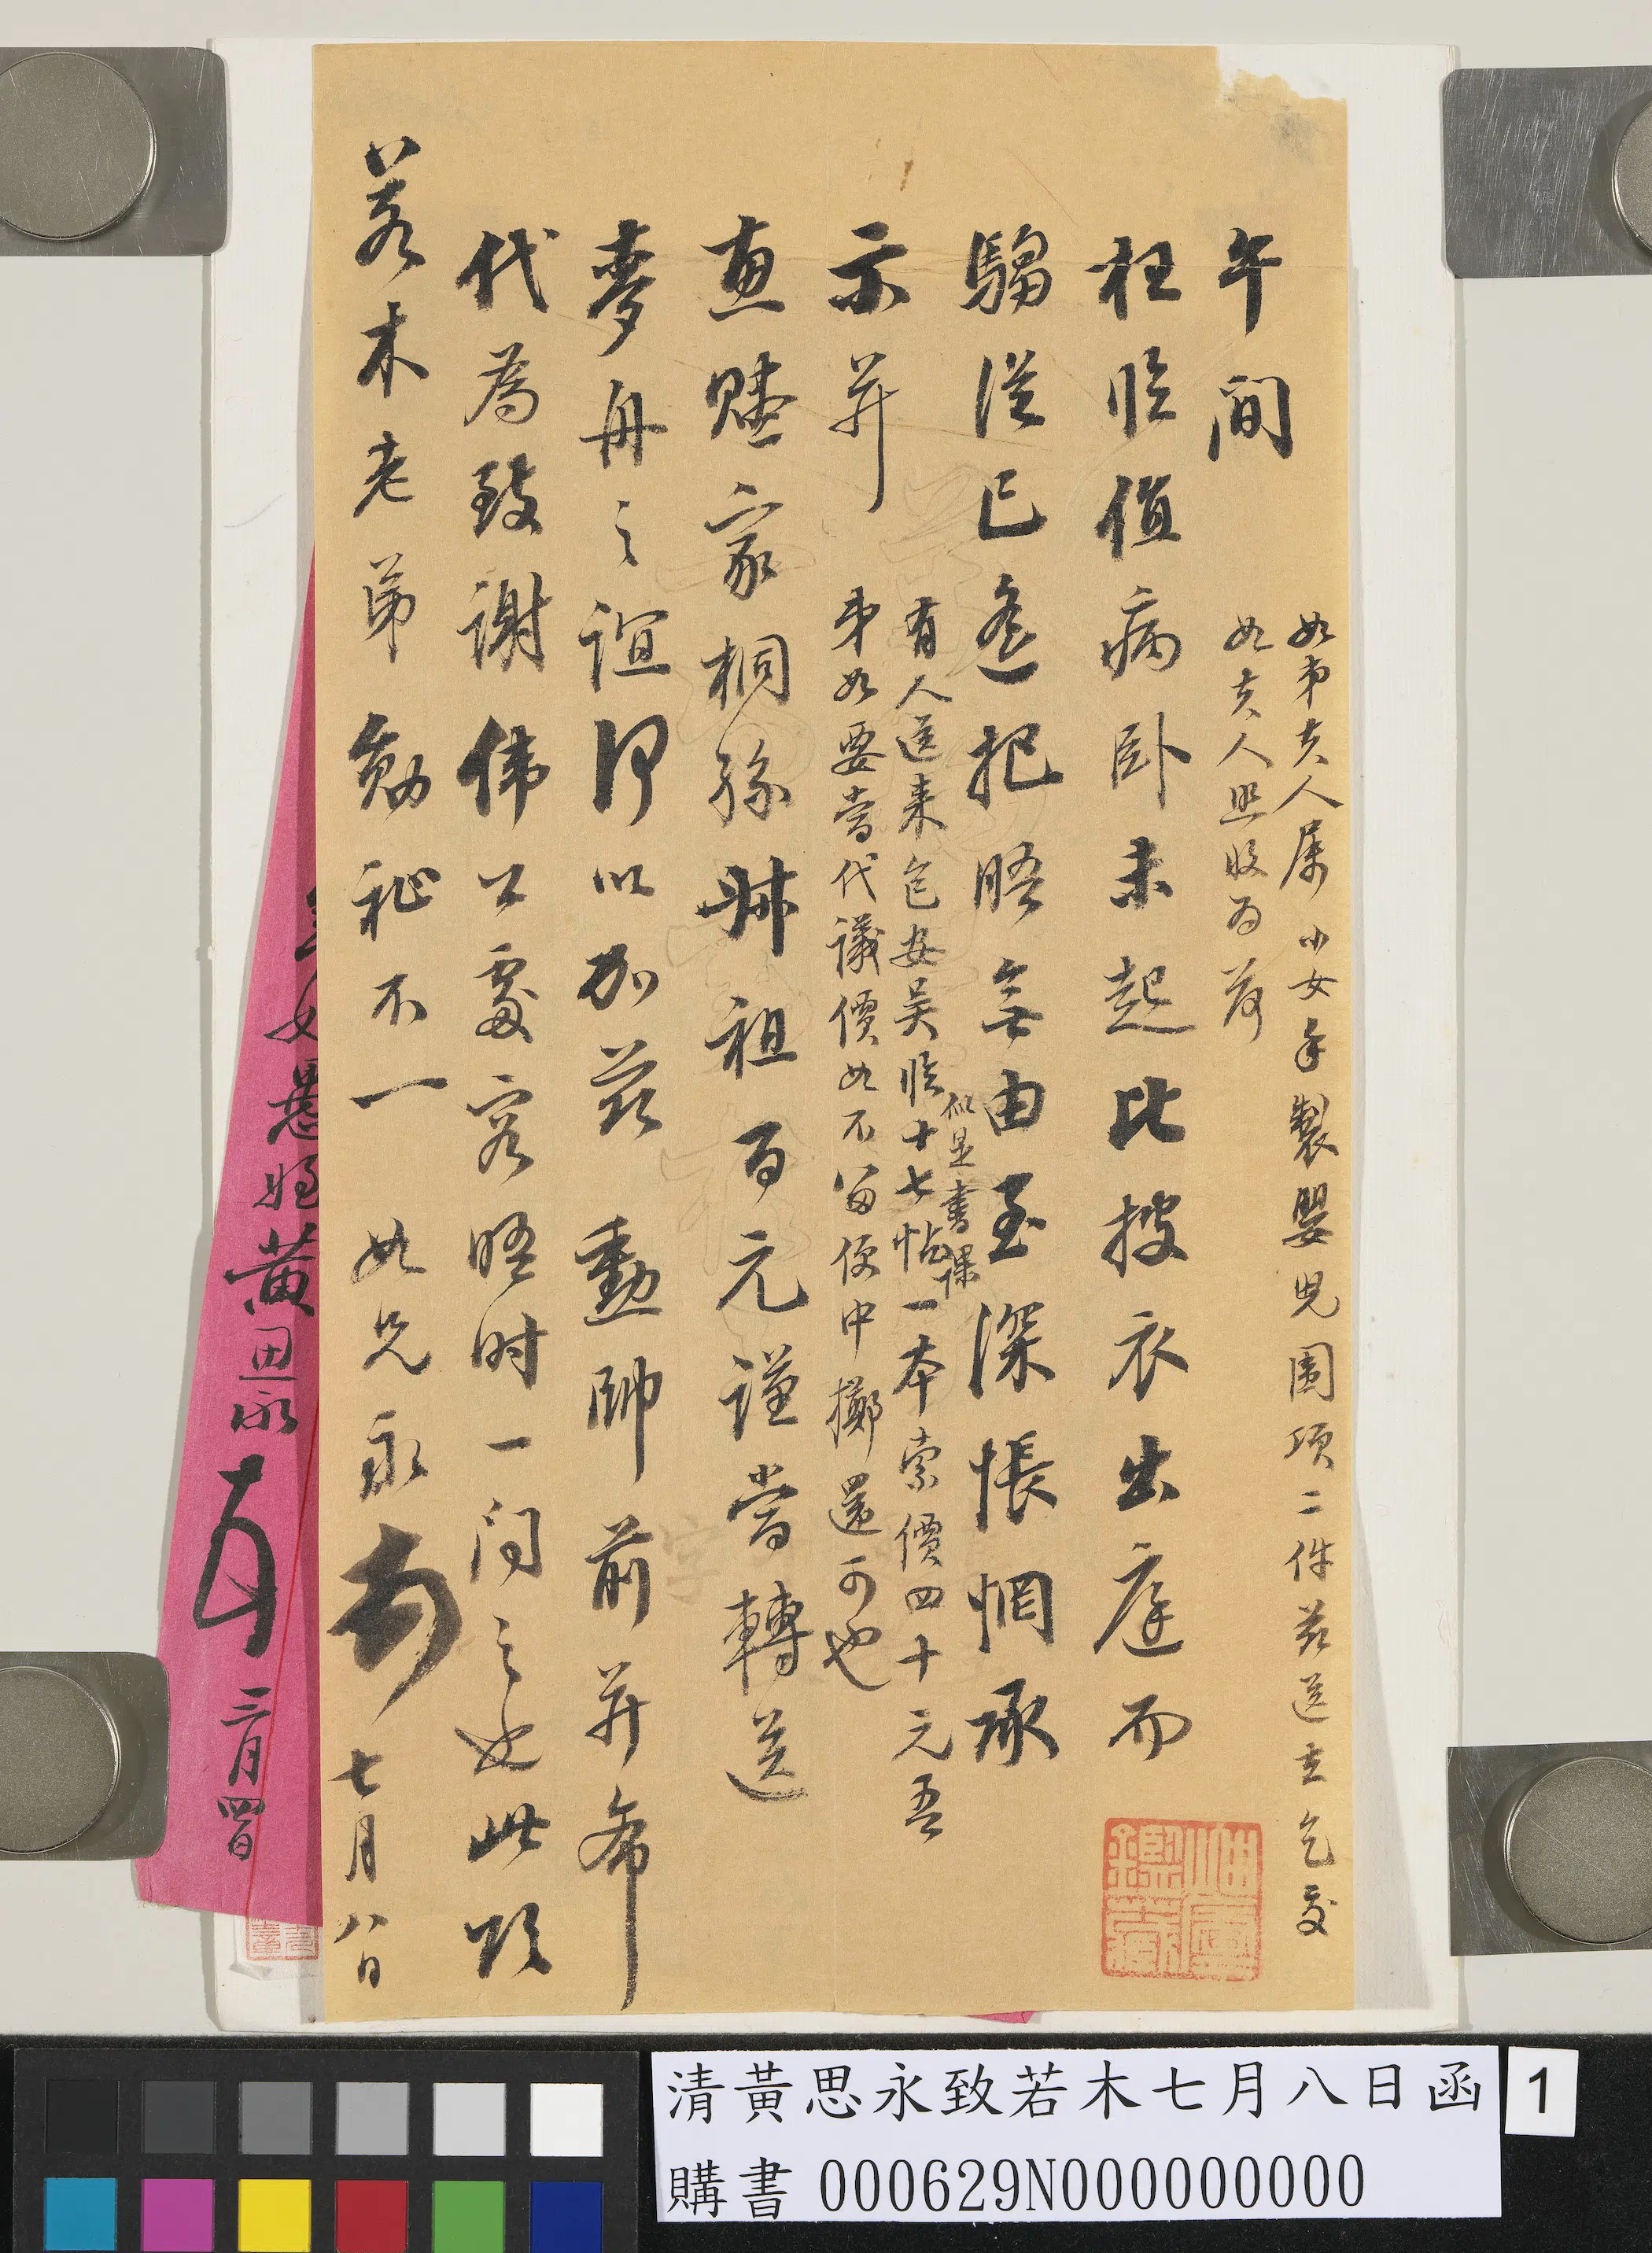 午間
枉臨值病卧未起比披衣出庭而
騶從已遠把晤無由至深悵惘承
示并
惠賻家桐孫叔祖百元謹當轉送
麥舟之誼何以加兹 勳帥前并希
代為致謝偉公處容晤时一问之也此頌
若木老弟勛祉不一 如兄永 七月八日
如弟夫人屬小女手製嬰兒圍項二件兹送去乞交
如夫人照收為荷
有人送来包安吴臨十七帖一本索價四十元吾
似是書課
弟如要當代議價如不留便中擲還可也
愚姪黃思永
三月四日
清黃思永致若木七月八日函
1
購書 000629N000000000